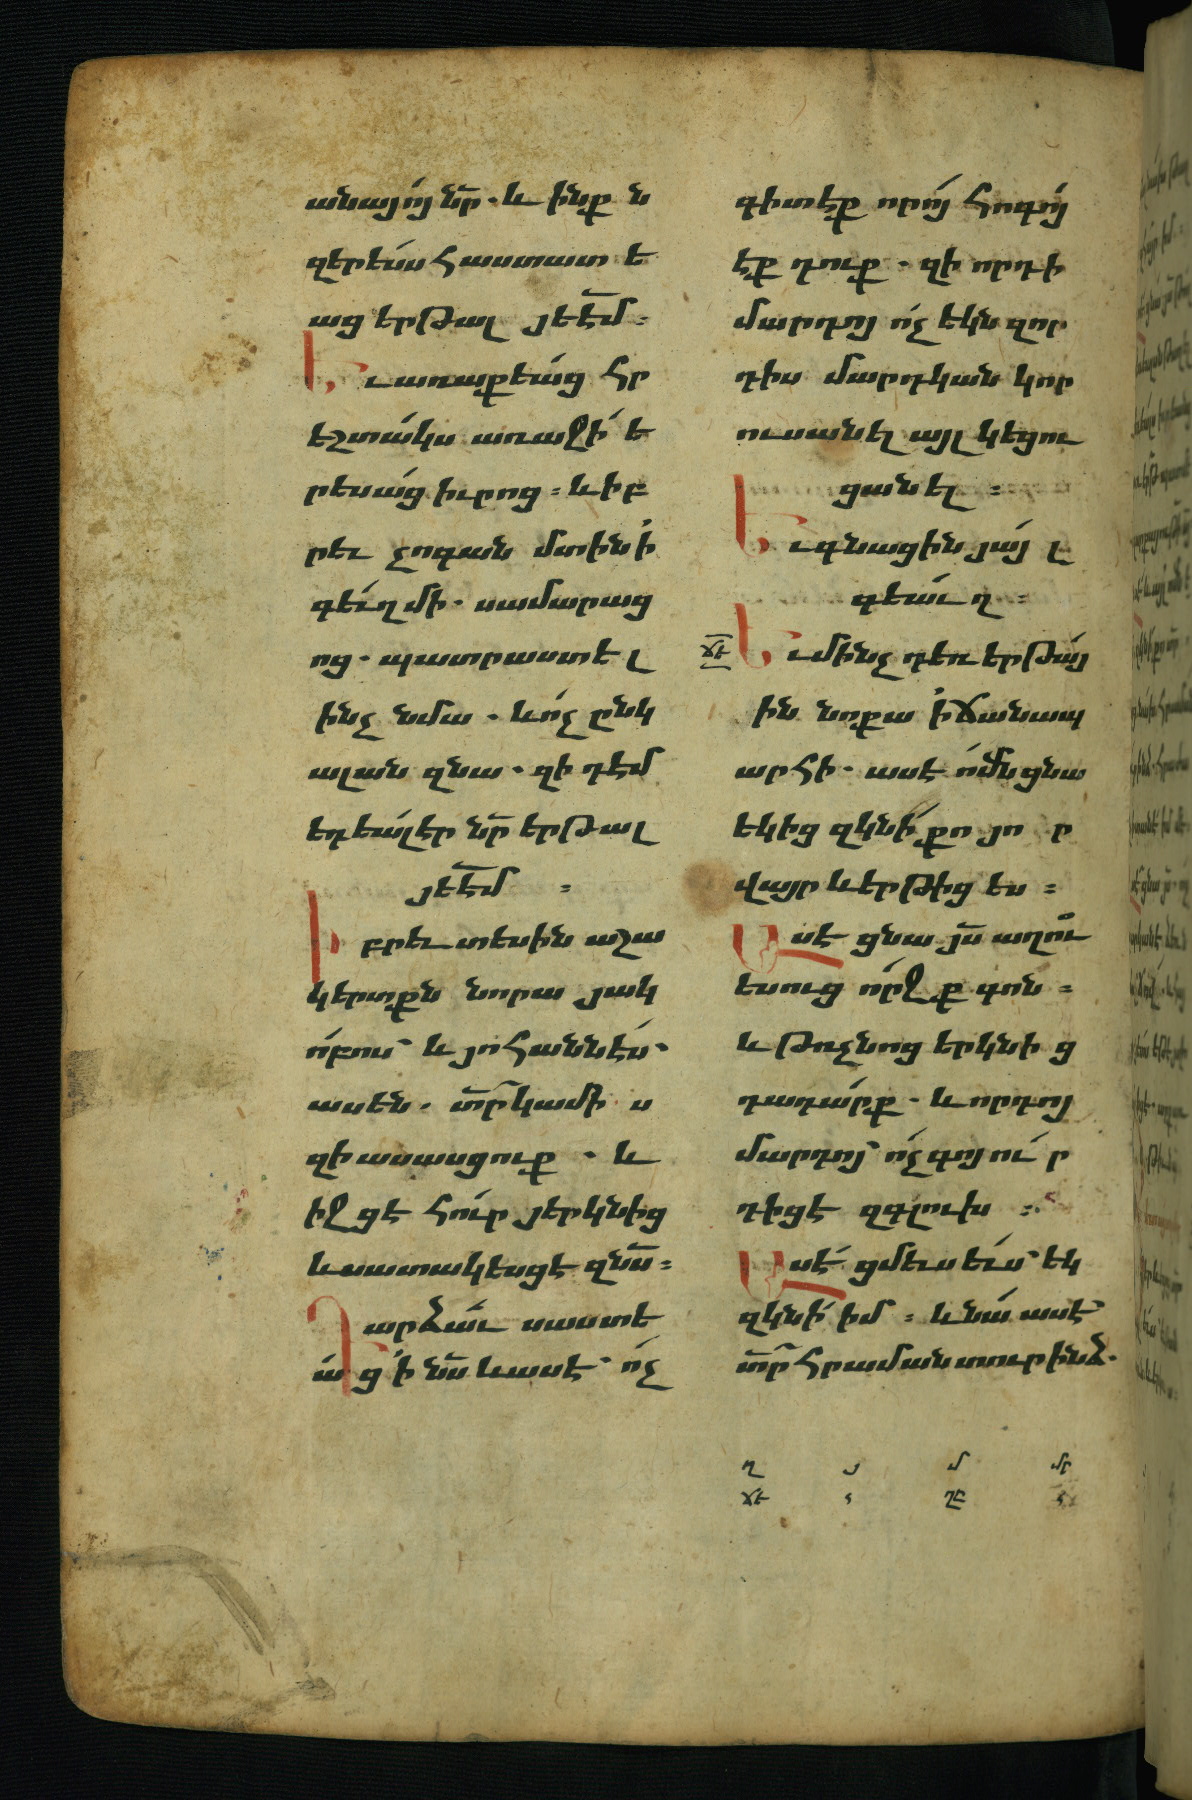 անայոյ նր. և ինքն
զերեսս հաստատե
աց երթալ յեէմ։
Եւ առաքեաց հր
եշտակս առաջի ե
րեսաց իւրոց։ և իբ
րեւ չոգան մտին ի
գեւղ մի. սամարաց
ոց. պատրաստել
ինչ նմա. և ոչ ընկ
ալան զնա. զի դէմ
եդեալ էր նր երթալ
յեէմ։
Իբրեւ տեսին աշա
կերտքն նորա յակ
ոբոս և յոհաննէս.
ասեն. տր կամիս
զի ասասցուք. և
իջցէ հուր յերկնից
և սատակեսցէ զնս։
Դարձաւ սաստե
աց ի նս և ասէ ոչ
գիտէք որոյ հոգոյ
էք դուք. զի որդի
մարդոյ ոչ եկն զոր
դիս մարդկան կոր
ուսանել այլ կեցու
ցանել։
Եւ գնացին յայլ
գեաւղ։
ՃԷ
Եւ մինչդեռ երթայ
ին նոքա ի ճանապ
արհի. ասէ ոմն ցնա
եկից զկնի քո յո ր
վայր և երթից ես։
Ասէ ցնա յս աղու
եսուց որջք գոն։
և թռչնոց երկնից
դադարք. և որդոյ
մարդոյ ոչ գոյ ուր
դիցէ զգլուխ։
Ասէ ցմեւս եւս եկ
զկնի իմ։ և նա ասէ
տր հրաման տուր ինձ.